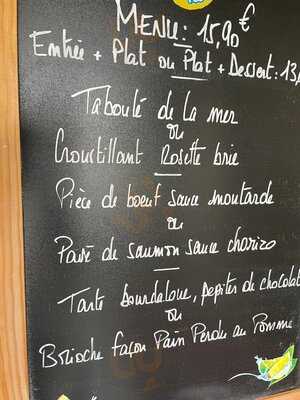 MENU: 15,90€
Entrée + Plat ou Plat + Dessert: 13
Taboulé de la mer
ou
Croustillant Rosette brie
Pièce de boeuf sauce moutarde
ou
Pavé de saumon sauce chorizo
Tarte bourdaloue, pepites de chocolat
ou
Brioche façon Pain Perdu au Pomme